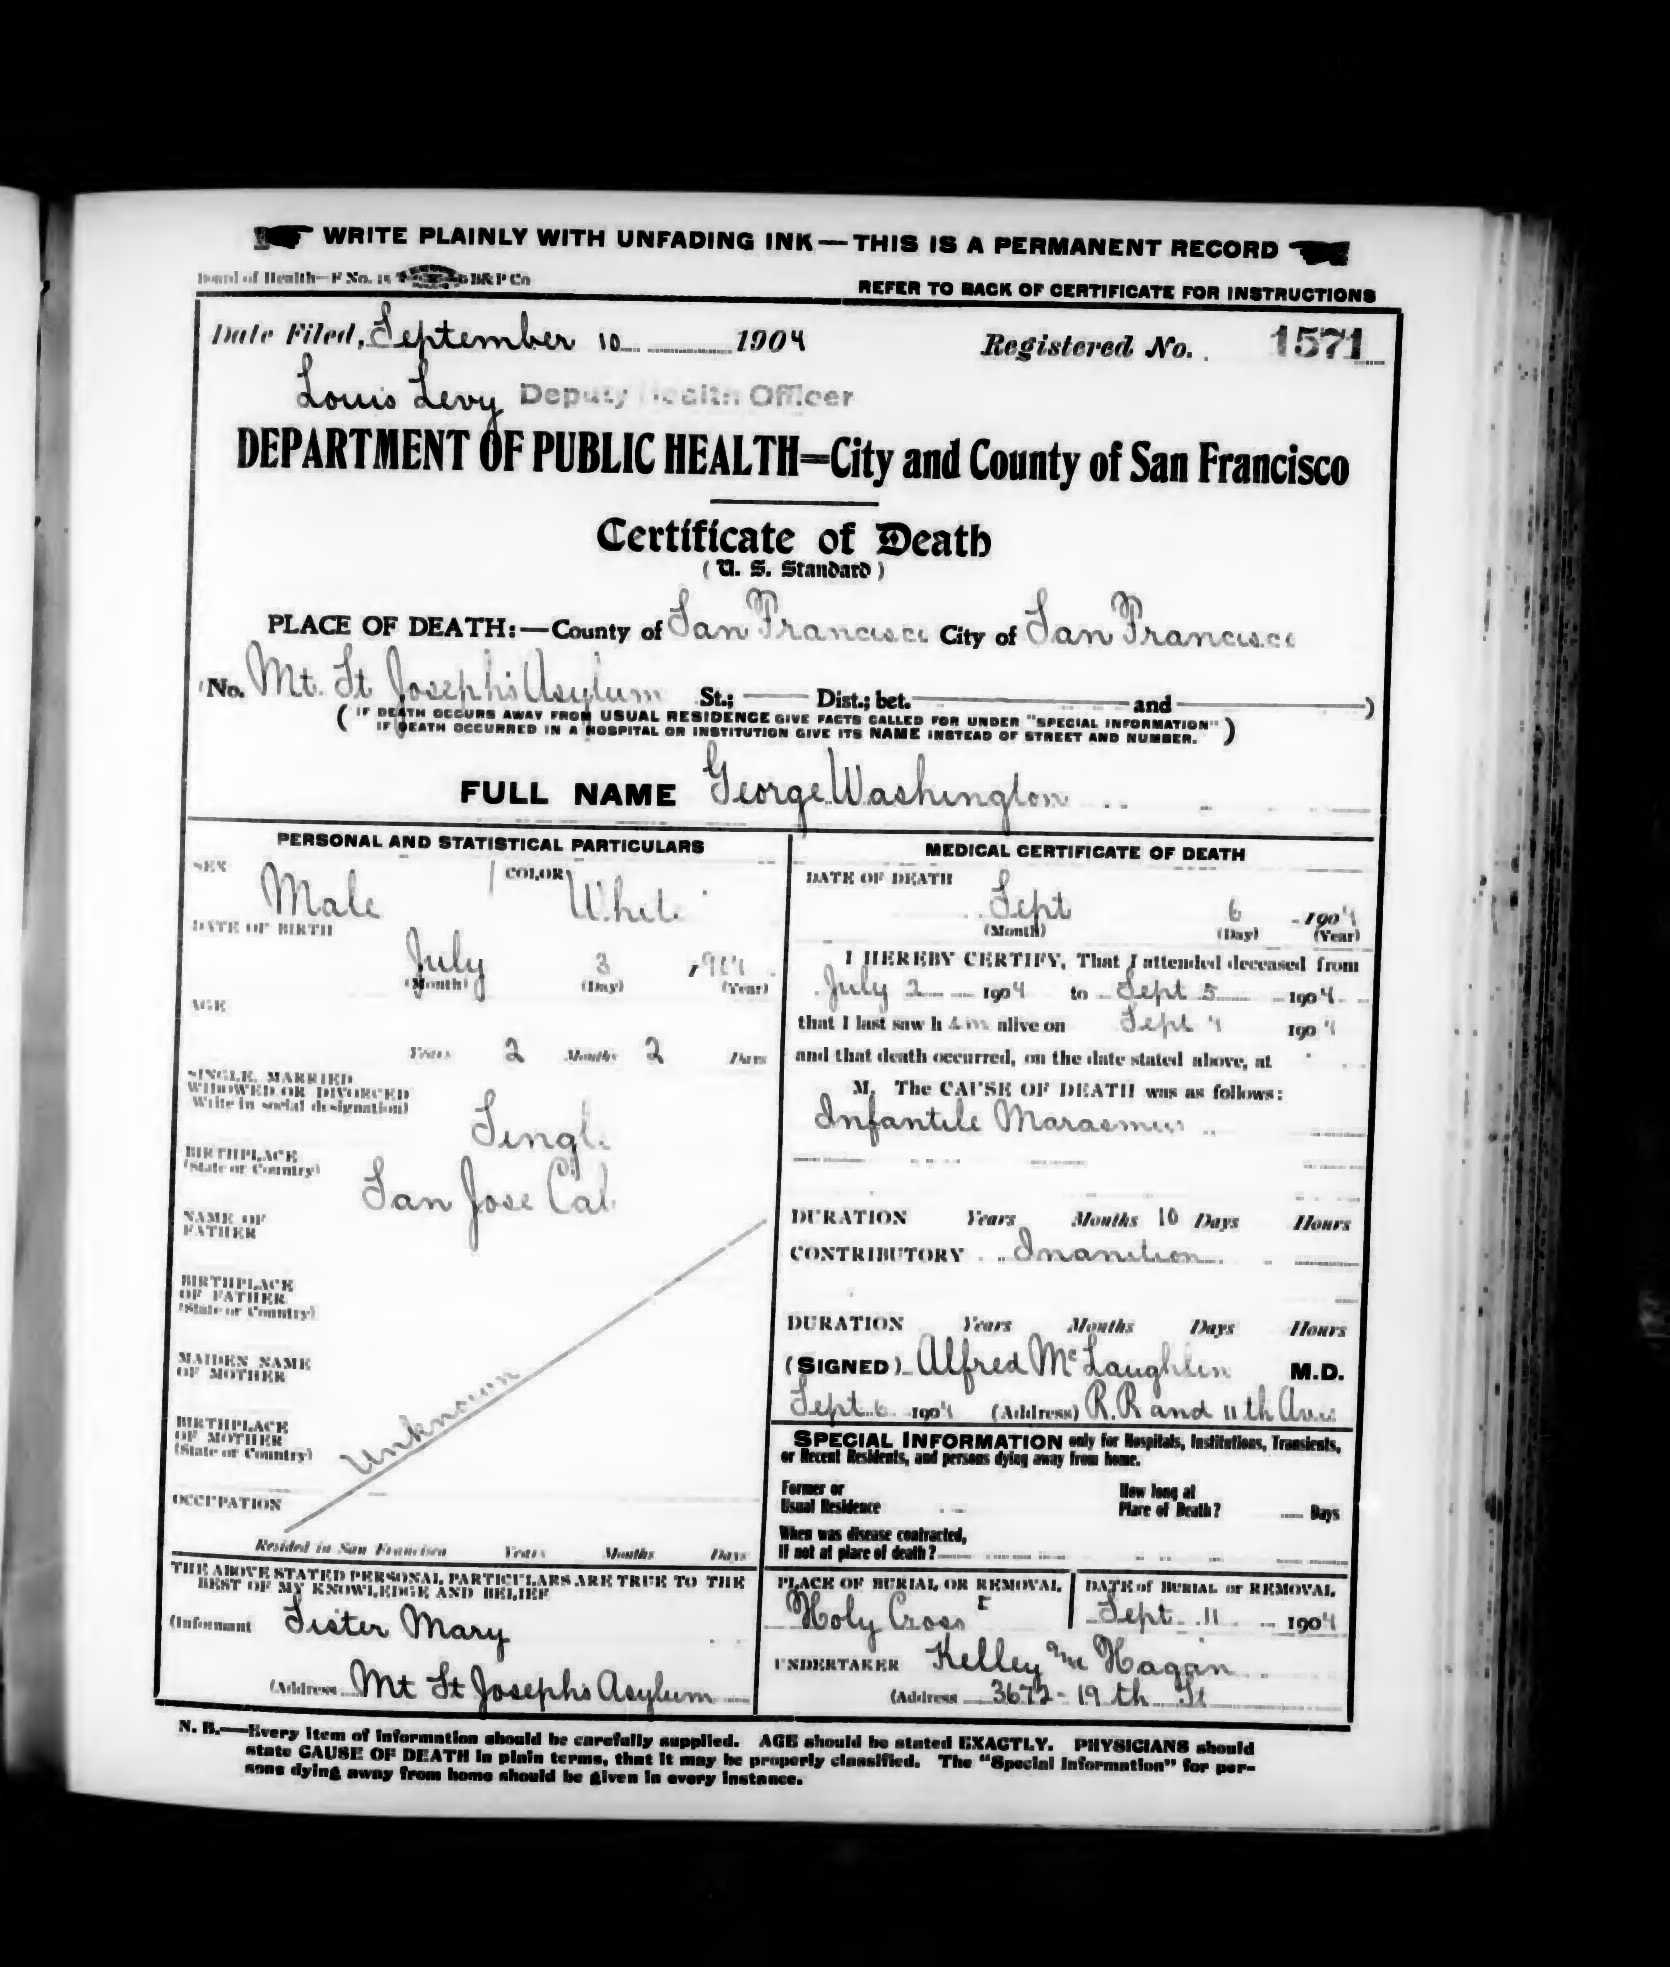 WRITE PLAINLY WITH UNFADING INK — THIS IS A PERMANENT RECORD
Board of Health—F No. 15 B&P Co
REFER TO BACK OF CERTIFICATE FOR INSTRUCTIONS
Date Filed, September 10 1904 Registered No. 1571
Louis Levy Deputy Health Officer
DEPARTMENT OF PUBLIC HEALTH=City and County of San Francisco
Certificate of Death
( U. S. Standard )
PLACE OF DEATH:—County of San Francisco City of San Francisco
(No. Mt. St Joseph's Asylum St.; Dist.; bet. and )
( IF DEATH OCCURS AWAY FROM USUAL RESIDENCE GIVE FACTS CALLED FOR UNDER "SPECIAL INFORMATION"
IF DEATH OCCURRED IN A HOSPITAL OR INSTITUTION GIVE ITS NAME INSTEAD OF STREET AND NUMBER. )
FULL NAME George Washington
PERSONAL AND STATISTICAL PARTICULARS
SEX Male COLOR White
DATE OF BIRTH
July 3 , 904
(Month) (Day) (Year)
AGE
Years 2 Months 2 Days
SINGLE, MARRIED
WIDOWED OR DIVORCED
Write in social designation)
Single
BIRTHPLACE
(State or Country)
San Jose Cal
NAME OF
FATHER
BIRTHPLACE
OF FATHER
(State or Country)
MAIDEN NAME
OF MOTHER
BIRTHPLACE
OF MOTHER
(State or Country)
Unknown
OCCUPATION
Resided in San Francisco Years Months Days
THE ABOVE STATED PERSONAL PARTICULARS ARE TRUE TO THE
BEST OF MY KNOWLEDGE AND BELIEF
(Informant Sister Mary
(Address Mt St Joseph's Asylum
MEDICAL CERTIFICATE OF DEATH
DATE OF DEATH
Sept 6 1904
(Month) (Day) (Year)
I HEREBY CERTIFY, That I attended deceased from
July 2 1904 to Sept 5 1904
that I last saw h im alive on Sept 4 1904
and that death occurred, on the date stated above, at
M. The CAUSE OF DEATH was as follows:
Infantile Marasmus
DURATION Years Months 10 Days Hours
CONTRIBUTORY Inanition
DURATION Years Months Days Hours
(SIGNED) Alfred McLaughlin M.D.
Sept 6 1904 (Address) R.R and 11th Ave
SPECIAL INFORMATION only for Hospitals, Institutions, Transients,
or Recent Residents, and persons dying away from home.
Former or
Usual Residence
How long at
Place of Death? Days
When was disease contracted,
If not at place of death?
PLACE OF BURIAL OR REMOVAL
Holy Cross
DATE of BURIAL or REMOVAL
Sept 11 1904
UNDERTAKER Kelley Hagan
(Address 3672 - 19th St
N. B.—Every item of information should be carefully supplied. AGE should be stated EXACTLY. PHYSICIANS should
state CAUSE OF DEATH in plain terms, that it may be properly classified. The "Special Information" for per-
sons dying away from home should be given in every instance.